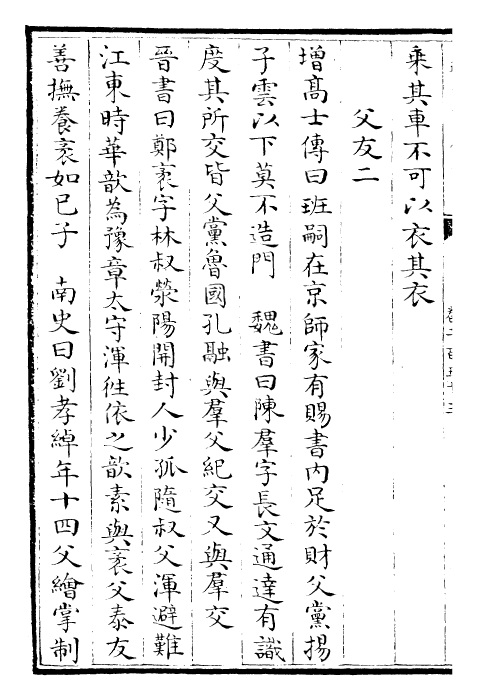 乘其車不可以衣其衣
父友二
增髙士傳曰班嗣在京師家有賜書内足於財父黨揚
子雲以下莫不造門　魏書曰陳羣字長文通達有識
度其所交皆父黨魯國孔融與羣父紀交又與羣交
晉書曰鄭袤字林叔滎陽開封人少孤隨叔父渾避難
江東時華歆為豫章太守渾徃依之歆素與袤父泰友
善撫養袤如已子　南史曰劉孝綽年十四父繪掌制